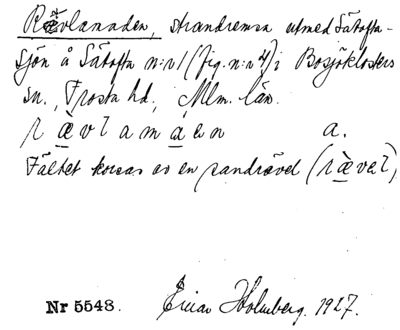 Rävlanaden, strandremsa utmed Sätofta-
sjön å Sätofta n:r 1 (fig. n:r 4) i Bosjöklosters
sn., Frosta hd., Mlm. län.
r ä̀ v l a m á ƨn a.
Fältet korsas av en sandrävel (rä̀vel),
Nr 5548. Einar Holmberg. 1927.